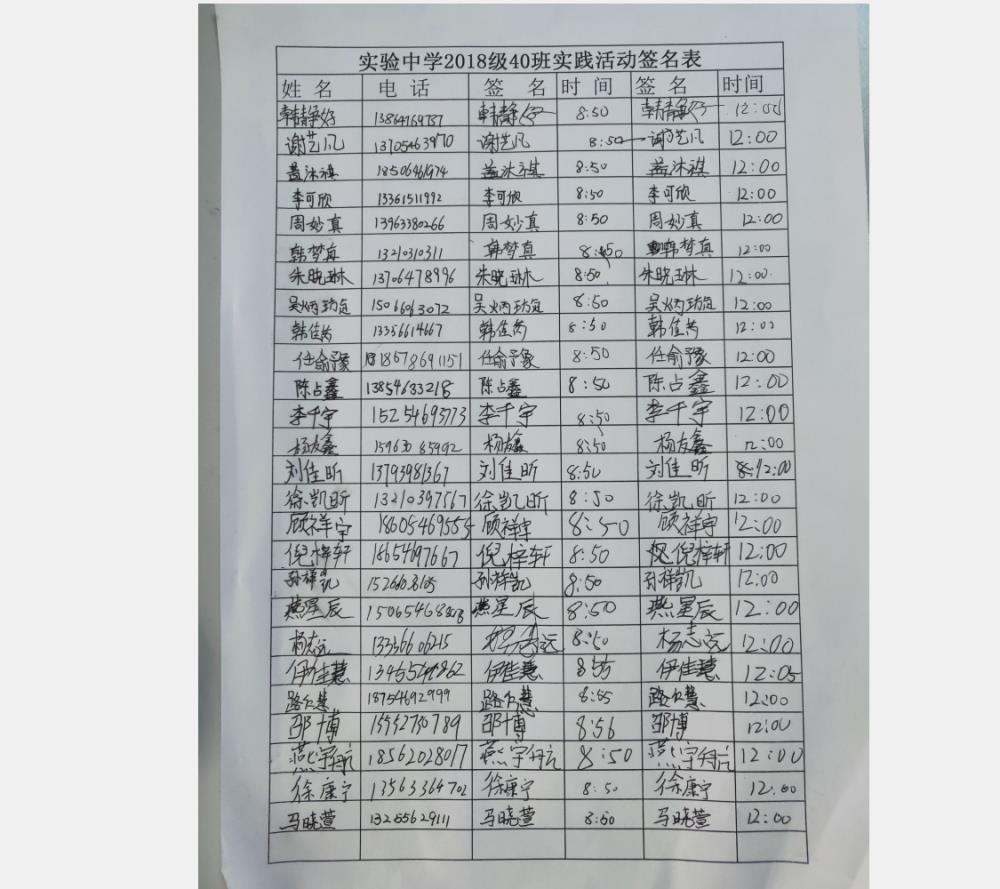 实验中学2018级40班实践活动签名表
姓 名 电 话 签 名 时 间 签 名 时间
韩静好 13864769787 韩静好 8:50 韩静好 12:00
谢艺凡 13705463970 谢艺凡 8:50 谢艺凡 12:00
盖沐祺 盖沐祺 8:50 盖沐祺 12:00
李可欣 13361511992 李可欣 8:50 李可欣 12:00
周妙真 13963380266 周妙真 8:50 周妙真 12:00
韩梦真 13210310311 韩梦真 8:50 韩梦真 12:00
朱晓琳 13706478996 朱晓琳 8:50 朱晓琳 12:00
吴炳 吴炳 8:50 吴炳 12:00
韩佳芮 13356614667 韩佳芮 8:50 韩佳芮 12:00
任俞豫 18678691151 任俞豫 8:50 任俞豫 12:00
陈占鑫 13854633218 陈占鑫 8:50 陈占鑫 12:00
李千宇 15254693773 李千宇 8:50 李千宇 12:00
杨友鑫 杨友鑫 8:50 杨友鑫 12:00
刘佳昕 13793981367 刘佳昕 8:50 刘佳昕 12:00
徐凯昕 13210397567 徐凯昕 8:50 徐凯昕 12:00
顾祥宇 18605469555 顾祥宇 8:50 顾祥宇 12:00
倪梓轩 18654697667 倪梓轩 8:50 倪梓轩 12:00
孙祥凯 孙祥凯 8:50 孙祥凯 12:00
燕星辰 燕星辰 8:50 燕星辰 12:00
杨志远 13336606215 8:50 杨志远 12:00
伊佳慧 伊佳慧 8:55 伊佳慧 12:05
路公慧 18754692999 路公慧 8:55 路公慧 12:00
邵博 15552730789 邵博 8:56 邵博 12:00
燕宇航 18562028017 燕宇航 8:50 燕宇航 12:00
徐康宁 13563364702 徐康宁 8:50 徐康宁 12:00
马晓萱 13255629111 马晓萱 8:50 马晓萱 12:00